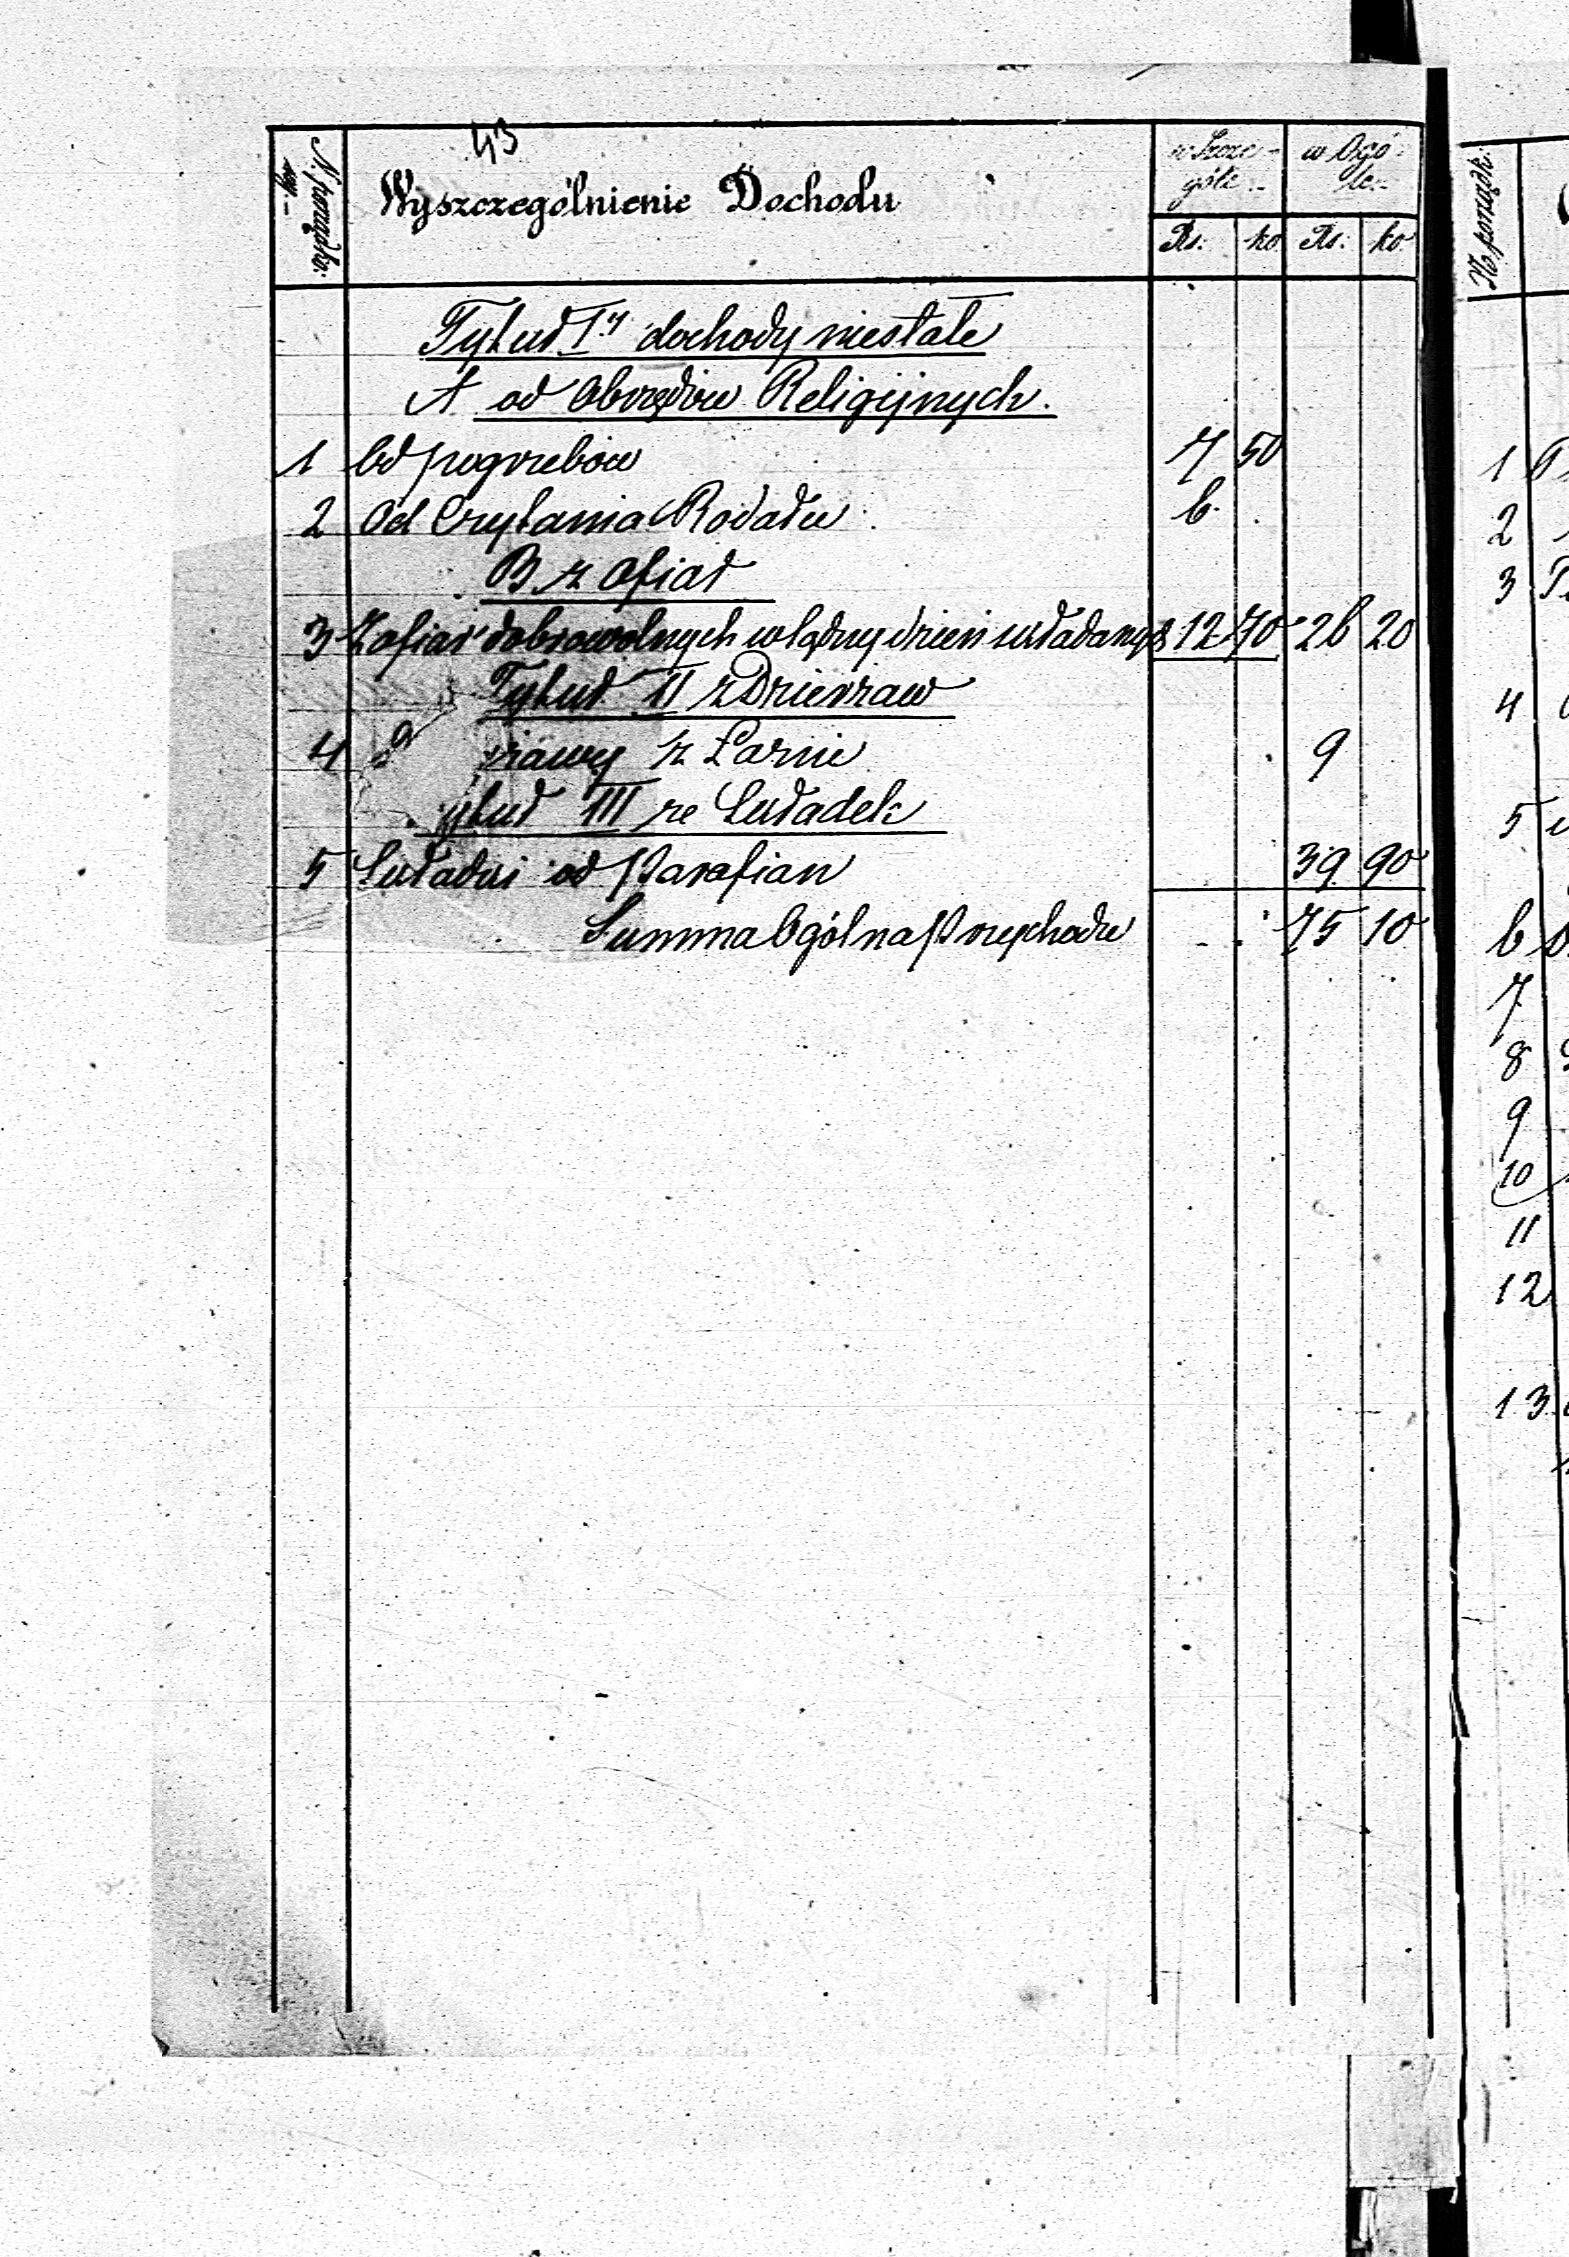 43
N. porządko- wy -
Wyszczególnienie Dochodu
w Szcze- góle ..
w Ogó- le..
Rs: ko Rs: ko
Tytuł I.y dochody niestałe
A od Obrzędów Religijnych.
1 Od pogrzebów 7 50
2 Od Czytania Rodału. 6.
B z Ofiar
3 Z ofiar dobrowolnych w Sądny dzień składanych 12 70 26 20
Tytuł II z Dzierżaw
4 D żawy z Łaźni 9
ytuł III ze Składek
5 Składki od Parafian 39 90
Summa Ogólna Przychodu 75 10
N porządk:
1
2
3
4
5
6
7
8
9
10
11
12
13